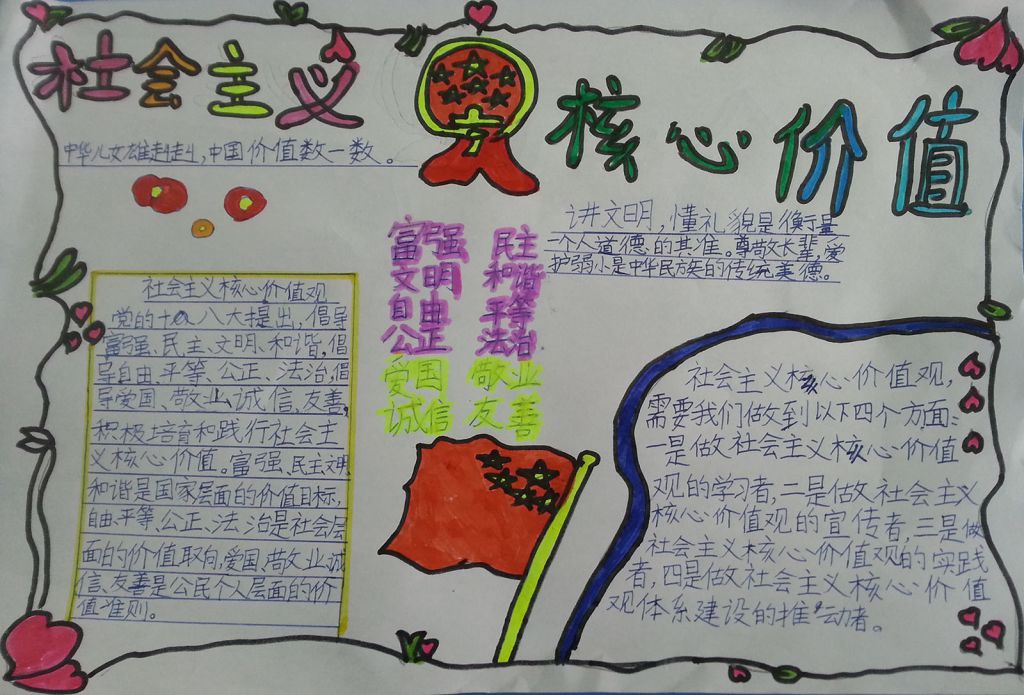 社会主义
核心价值
中华儿女雄赳赳,中国价值数一数。
讲文明,懂礼貌是衡量
一个人道德的其准。尊敬长辈,爱
护弱小是中华民族的传统美德。
富强 民主
文明 和谐
自由 平等
公正 法治
爱国 敬业
诚信 友善
社会主义核心价值观
党的十八大提出,倡导
富强、民主、文明、和谐,倡
导自由、平等、公正、法治,倡
导爱国、敬业、诚信、友善,
积极培育和践行社会主
义核心价值。富强、民主文明
和谐是国家层面的价值目标,
自由、平等、公正、法治是社会层
面的价值取向,爱国、敬业诚
信、友善是公民个人层面的价
值准则。
社会主义核心价值观,
需要我们做到以下四个方面:
一是做社会主义核心价值
观的学习者,二是做社会主义
核心价值观的宣传者,三是做
社会主义核心价值观的实践
者,四是做社会主义核心价值
观体系建设的推动者。